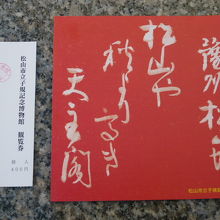 松山市立子規記念博物館 観覧券
個人
400円
松山や
秋より高き
天主閣
松山市立子規